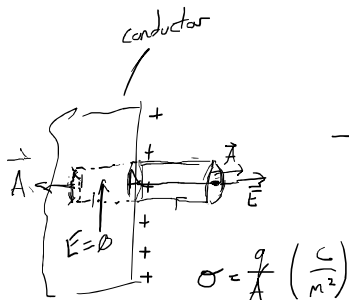 conductor
+
+
A⃗
A⃗
+
E⃗
E=0
+
+
+
σ = q/A (C/m²)